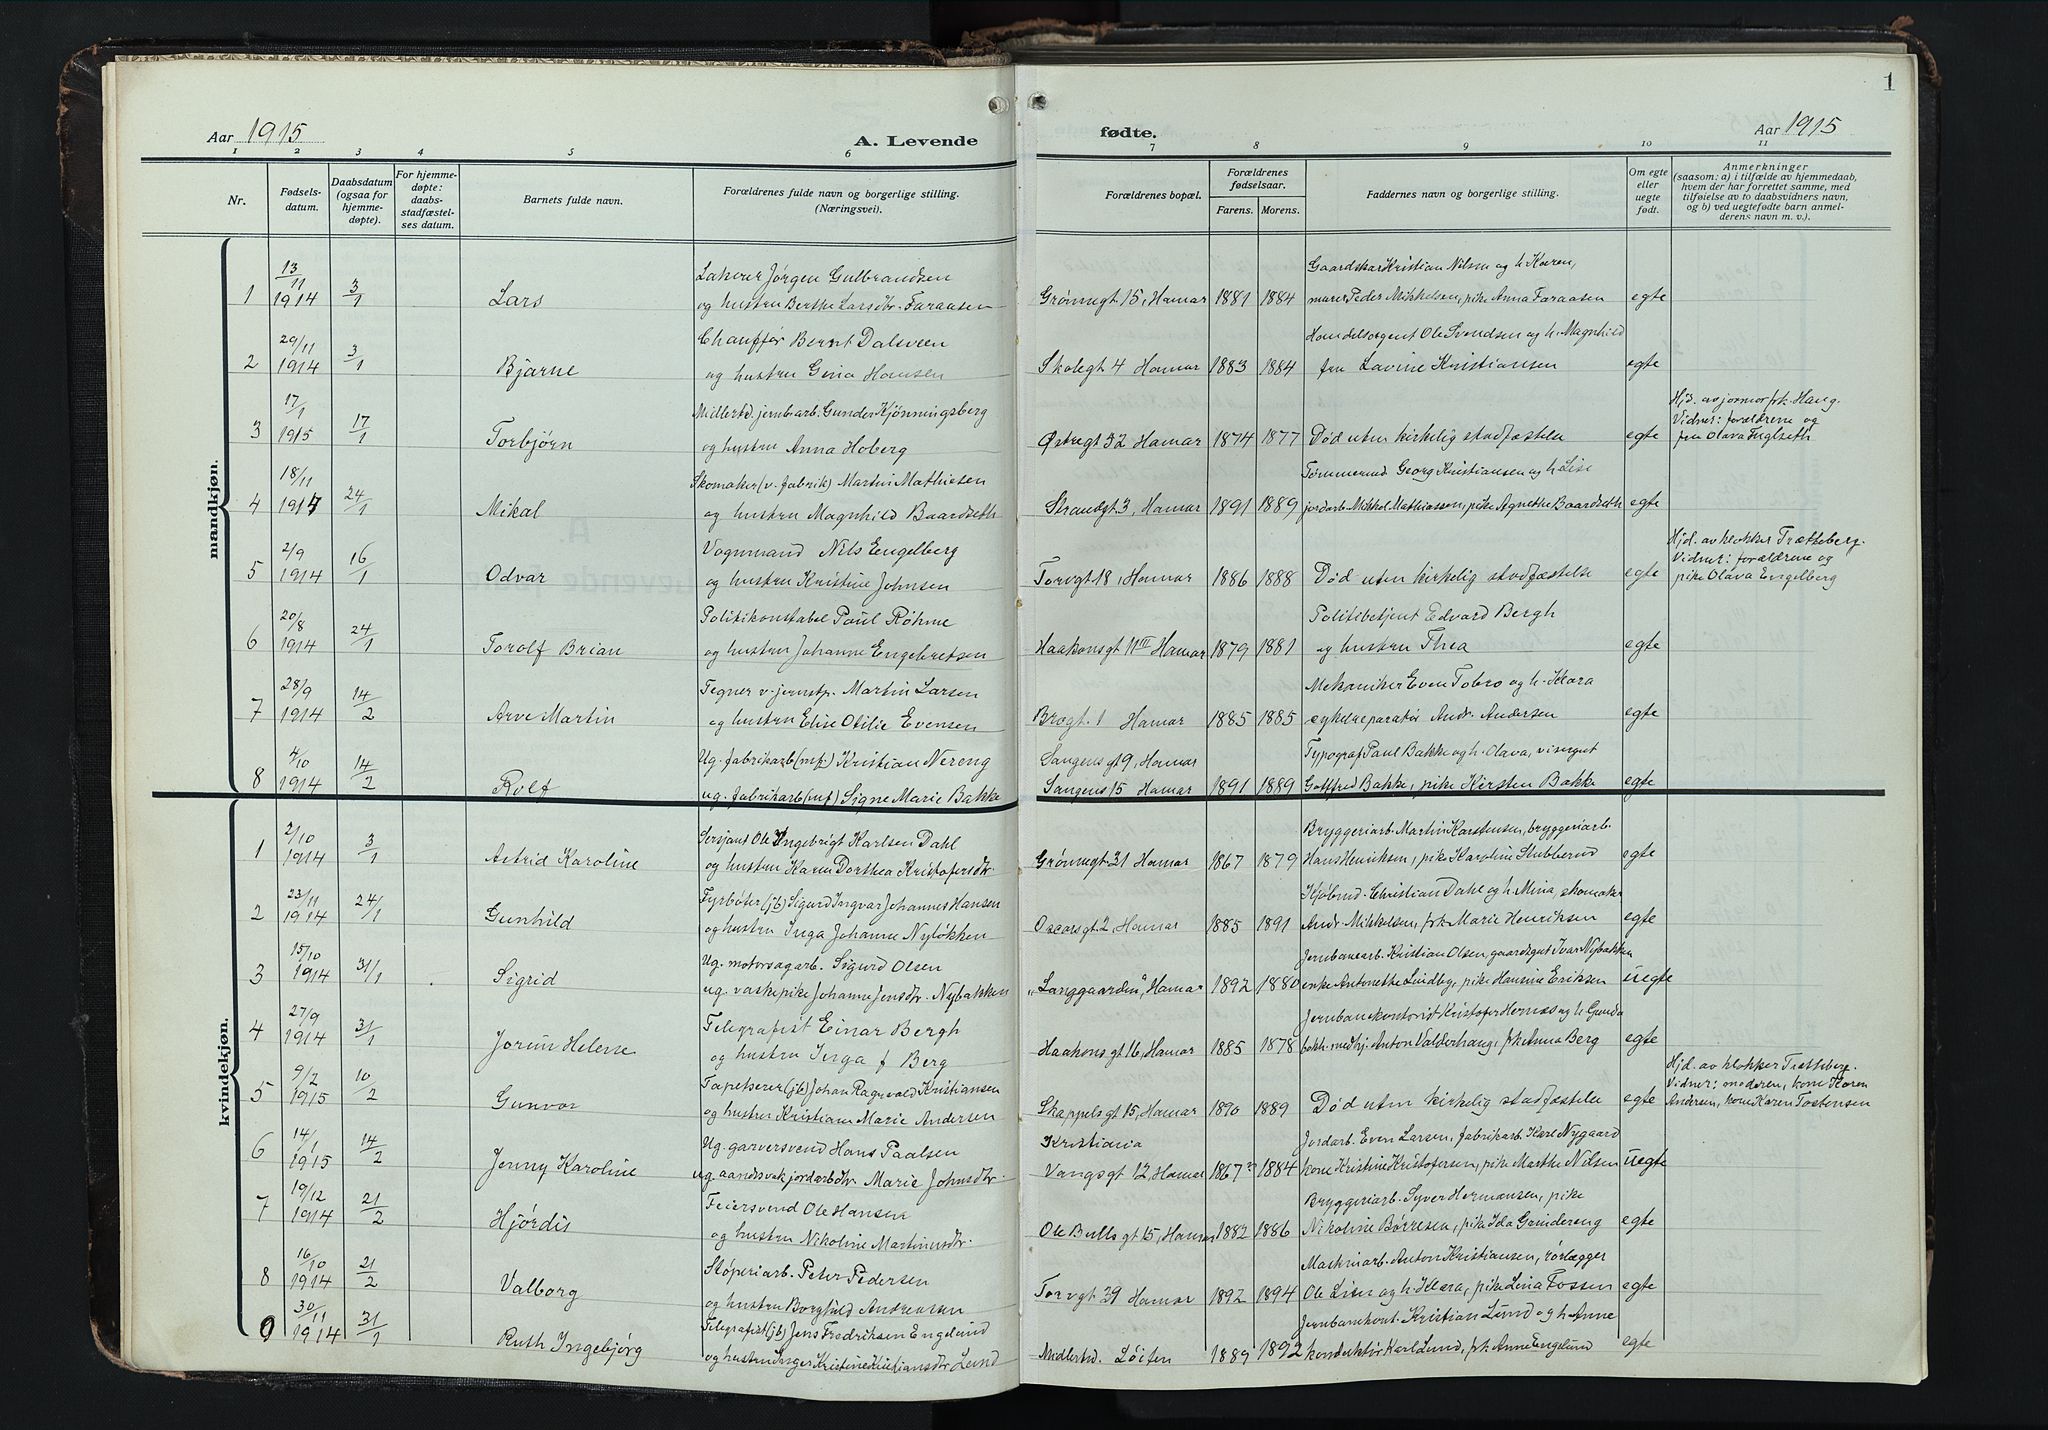 1
Aar 1915
A. Levende
fødte.
Aar 1915
1 2 3 4 5 6 7 8 9 10 11
Nr.
Fødsels-
datum.
Daabsdatum
(ogsaa for
hjemme-
døpte).
For hjemme-
døpte:
daabs-
stadfæstel-
ses datum.
Barnets fulde navn.
Forældrenes fulde navn og borgerlige stilling.
(Næringsvei).
Forældrenes bopæl.
Forældrenes
fødselsaar.
Farens. Morens.
Faddernes navn og borgerlige stilling.
Om egte
eller
uegte
født.
Anmerkninger
(saasom: a) i tilfælde av hjemmedaab,
hvem der har forrettet samme, med
tilføielse av to daabsvidners navn,
og b) ved uegtefødte barn anmel-
derens navn m. v.).
mandkjøn.
13/11 Jørgen Gulbrandsen Gaardskar Kristian Nilsen og h. Karen,
1 1914 3/1 Lars og hustru Berthe Larsdtr. Faraasen Grønnegt 15, Hamar 1881 1884 murer Peder Mikkelsen, pike Anna Faraasen egte
29/11 Chauffør Bernt Dalsveen Handelsagent Ole Svendsen og h. Magnhild
2 1914 3/1 Bjarne og hustru Gina Hansen Skolegt 4 Hamar 1883 1884 fru Lavine Kristiansen egte
17/1 Midlertid. jernb.arb. Gunder Kjønningsberg Hjd. av jormor frk. Haug.
3 1915 17/1 Torbjørn og hustru Anna Hoberg Østregt 32 Hamar 1874 1877 Død uten kirkelig stadfæstelse egte Vidner: forældrene og
fru Olava Fuglseth
18/11 Skomaker (v. fabrik) Martin Mathiesen Tømmermd Georg Kristiansen og h. Lise
4 1914 24/1 Mikal og hustru Magnhild Baardseth Strandgt 3, Hamar 1891 1889 jordarb. Mikkel Mathiassen, pike Agnethe Baardseth egte
2/9 Vognmand Nils Engelberg Hjd. av klokker Trætteberg.
5 1914 16/1 Odvar og hustru Kristine Johnsen Torvgt 18, Hamar 1886 1888 Død uten kirkelig stadfæstelse egte Vidner: forældrene og
pike Olava Engelberg
20/8 Politikonstabel Paul Röhme Politibetjent Edvard Bergh
6 1914 24/1 Torolf Brian og hustru Johanne Engebretsen Haakonsgt 11 III Hamar 1879 1881 og hustru Thea egte
28/9 Tegner v. jernstp. Martin Larsen Mekaniker Even Tobro og h. Klara
7 1914 14/2 Arve Martin og hustru Elise Otilie Evensen Brogt. 1 Hamar 1885 1885 cykelreparatør Andr. Andersen egte
4/10 Ug. fabrikarb (mf.) Kristian Nereng Sangens gt 9, Hamar Typograf Paul Bakke og h. Olava, visergut
8 1914 14/2 Rolf ug. fabrikarb (mf) Signe Marie Bakke Sangens 15 Hamar 1891 1889 Gottfred Bakke, pike Kirsten Bakke egte
kvindekjøn.
2/10 Sersjant Ole Ingebrigt Karlsen Dahl Bryggeriarb. Martin Karstensen, bryggeriarb.
1 1914 3/1 Astrid Karoline og hustru Karen Dorthea Kristofersdtr. Grønnegt 31 Hamar 1867 1879 Hans Henriksen, pike Karoline Stubberud egte
23/11 Fyrbøter (jb) Sigurd Ingvar Johannes Hansen Kjøbmd. Christian Dahl og h. Mina, skomaker
2 1914 24/1 Gunhild og hustru Inga Johanne Nyløkken Oscarsgt 2, Hamar 1885 1891 Andr. Mikkelsen, frk Marie Henriksen egte
15/10 Ug. motorsagarb. Sigurd Olsen Jernbanearb. Kristian Olsen, gaardsgut Ivar Nybakken
3 1914 31/1 Sigrid ug. vaskepike Johanne Jensdtr. Nybakken "Langgaarden", Hamar 1892 1880 enke Antonette Lindby, pike Hansine Eriksen uegte
27/9 Telegrafist Einar Bergh Jernbanekontorist Kristofer Hernæs og h. Gunda
4 1914 31/1 Jorun Helene og hustru Inga f Berg Haakons gt 16, Hamar 1885 1878 bokh. medhj. Anton Valderhaug, frk Anna Berg egte
9/2 Tapetserer (jb) Johan Ragnvald Kristiansen Hjd. av klokker Trætteberg.
5 1915 10/2 Gunvor og hustru Kristiane Marie Andersen Skappelsgt 15, Hamar 1890 1889 Død uten kirkelig stadfæstelse egte Vidner: moderen, kone Karen
Andersen, kone Karen Tostensen
14/1 Ug. garversvend Hans Paalsen Kristiania Jordarb. Even Larsen, fabrikarb. Karl Nygaard
6 1915 14/2 Jenny Karoline ug. aandsvak jordarbdtr. Marie Johnsdtr. Vangsgt 12, Hamar 1867 1884 kone Kristine Kristofersen, pike Marthe Nilsen uegte
19/12 Feiersvend Ole Hansen Bryggeriarb. Syver Hermansen, pike
7 1914 21/2 Hjørdis og hustru Nikoline Martinusdtr. Ole Bulls gt 15, Hamar 1882 1886 Nikoline Børresen, pike Ida Grindereng egte
16/10 Støperiarb. Peter Pedersen Maskinarb. Anton Kristiansen, rørlægger
8 1914 21/2 Valborg og hustru Borghild Andreasen Torvgt 39 Hamar 1892 1894 Ole Lien og h. Klara, pike Lina Fossen egte
30/11 Telegrafist (jb) Jens Fredriksen Engelund Jernbanekont. Kristian Lund og h. Anne
9 1914 31/1 Ruth Ingebjørg og hustru Inger Kristine Kristiansdtr Lund Midlertid. Løiten 1889 1892 konduktør Karl Lund, frk Anne Engelund egte